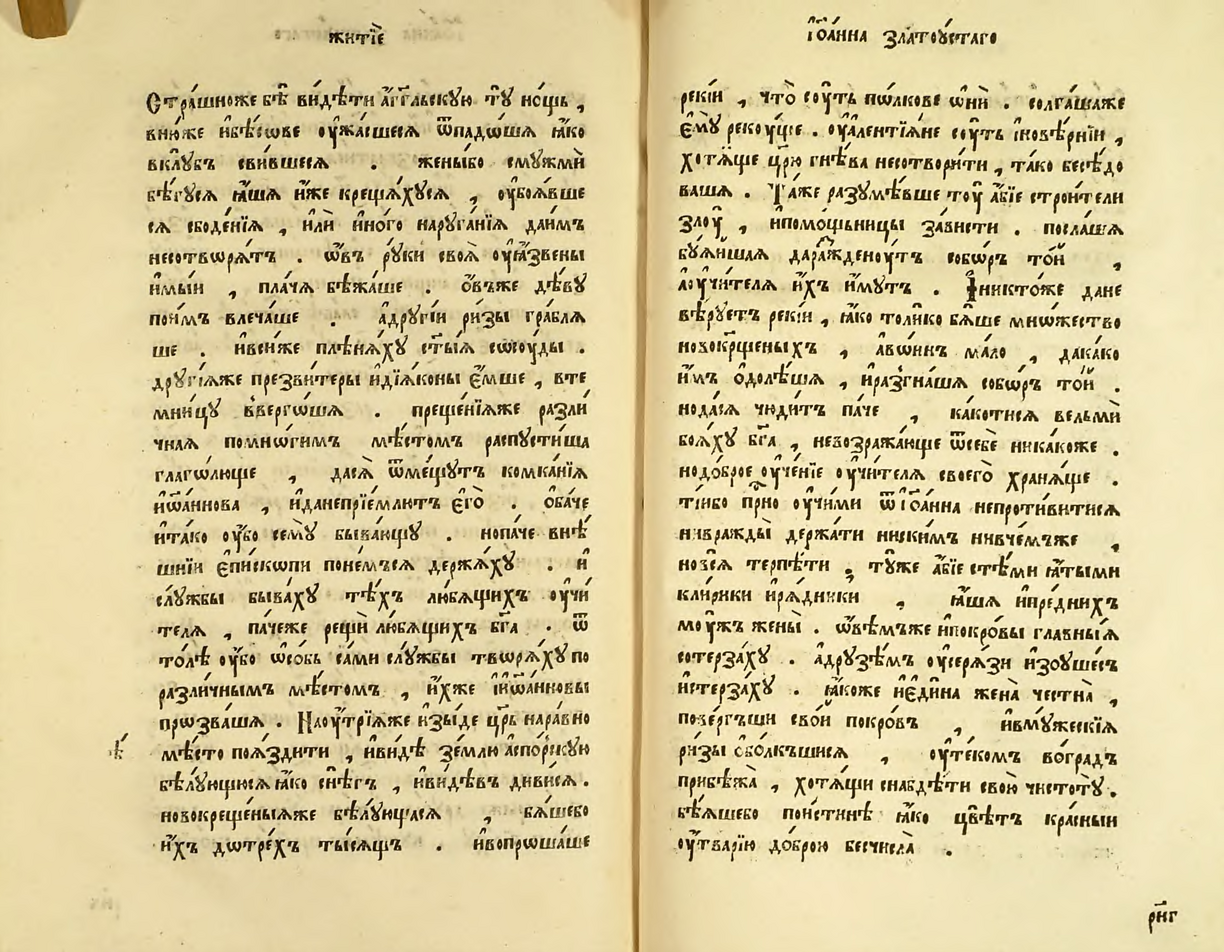 житїе
Стра́шноже бѣ̀ ви́дѣти а҆́гг҃льскую тꙋ̀ но́щь ,
внюже ибѣ́сѡве ꙋ҆жа́сшеся ѿпадо́шѧ ꙗ҆́ко
вклꙋ́бъ сви́вшесѧ . жены́бо смꙋжмѝ
бѣ́гꙋсѧ ꙗ҆́шѧ и҆́же креща́хꙋсѧ , ꙋ҆боѧ́вше
сѧ сбоде́нїѧ , и҆лѝ и҆но́го нарꙋга́нїѧ даи҆́мъ
несотворѧ́тъ . ѻ҆́въ рꙋ́ки своѧ̀ ᲂу҆ꙗ҆́звены
и҆мы́и , пла́чѧ бѣжа́ше . о҆́въже дѣ́вꙋ
пои́мъ влеча́ше . а҆дрꙋгі́и ри́зы гра́блѧ
ше . и҆вси́же плѣнѧ́хꙋ ст҃ы́ѧ сосᲂу́ды .
дрꙋгі́ѧже презви́теры и҆дїѧ́коны є҆́мше , вте
мни́цꙋ вве́ргѡшѧ . преще́нїѧже разли́
чнаѧ помнѡ́гимъ мѣ́стомъ распꙋсти́ша
глаго́люще , дасѧ̀ ѿме́щꙋтъ комка́нїѧ
и҆ѡа́ннова , и҆данепрїе́млютъ є҆гѡ̀ . ѻ҆ба́че
и҆та́ко ᲂу҆́бо семꙋ̀ быва́ющꙋ . нопа́че внѣ̀
шнїи є҆пи́скопи поне́мъсѧ держѧ́хꙋ . и҆
слꙋ́жбы быва́хꙋ тѣ́хъ лю́бѧщихъ ᲂу҆чи́
телѧ , па́чеже рещѝ лю́бѧщихъ бг҃а . ѿ
то́лѣ ᲂу҆́бо ѡ҆со́бь са́ми слꙋ́жбы творѧ́хꙋ по
разли́чнымъ мѣ́стомъ , и҆́хже і҆ѡа́нновы
прозва́шѧ . Наᲂу́трїѧже и҆зы́де цр҃ь нара́вно
мѣ́сто поѧ́здити , и҆ви́дѣ зе́млю а҆спо́рскꙋю
бѣ́лꙋющюсѧ ꙗ҆́ко снѣ́гъ , и҆ви́дѣвъ диви́сѧ .
новокреще́ныѧже бѣ́лꙋющасѧ , бѧ́шебо
и҆́хъ дотре́хъ ты́сѧщъ . и҆вопроша́ше
і҆ѡа́нна златоꙋ́стаго
реkі́и , что̀ сꙋ́ть полкове ѻ҆нѝ . солга́шаже
є҆мꙋ̀ рекꙋ́ще . ᲂу҆алентїѧ́не сꙋ́ть и҆новѣ́рнїи ,
хотѧ́ще цр҃ю гнѣ́ва несотвори́ти , та́ко бесѣ́до
вашѧ . Та́же разꙋмѣ́вше тꙋ̀ а҆́бїе строи́тели
злꙋ̀ , и҆помо́щьницы за́висти . посла́шѧ
бꙋ́йшаѧ дараждепꙋ́тъ собо́ръ то́й ,
аᲂу҆чи́телѧ и҆́хъ и҆́мꙋтъ . І҆никто́же дане
вѣ́рꙋетъ рекі́и , ꙗ҆́ко толи́ко бѧ́ше мно́жество
новокр҃щеныхъ , а҆во́инъ ма́ло , дака́ко
и҆́мъ ѻ҆долѣ́шѧ , и҆разгна́шѧ собо́ръ то́й .
нода́сѧ чю́дитъ па́че , ка́котисѧ вельмѝ
боѧ́хꙋ бг҃а , невозражáюще ѿсебѐ ника́коже .
нодо́брое ᲂу҆че́нїе ᲂу҆чи́телѧ своегѡ̀ хранѧ́ще .
ті́ибо при́сно ᲂу҆чи́ми ѿі҆ѡа́нна непроти́витисѧ
нивражды̀ держа́ти ни́скимъ нивче́мъже ,
новсѧ̀ терпѣ́ти . тꙋ́же а҆́бїе стѣ́ми ꙗ҆́тыми
кли́рики и҆рѧ́дники , ꙗ҆́шѧ и҆пре́днихъ
мꙋ́жъ жены̀ . ѻ҆вѣ́мъже и҆покро́вы главны́ѧ
сотерза́хꙋ . а҆дрꙋзѣ́мъ ᲂу҆серѧ́зи и҆зᲂу҆ше́съ
и҆стерза́хꙋ . ꙗ҆́коже и҆є҆ди́на жена̀ честна̀ ,
пове́ргъши сво́й покро́въ , и҆вмꙋ́жескїѧ
ри́зы ѻ҆болкъшисѧ , ᲂу҆те́комъ во́градъ
прибѣжа̀ , хотѧ́щи снабдѣ́ти свою̀ чистотꙋ̀ .
бѣѧ́шебо пои́стинѣ ꙗ҆́ко цвѣ́тъ кра́сныи
ᲂу҆тва́рїю до́брою бесчи́сла .
рн҃г